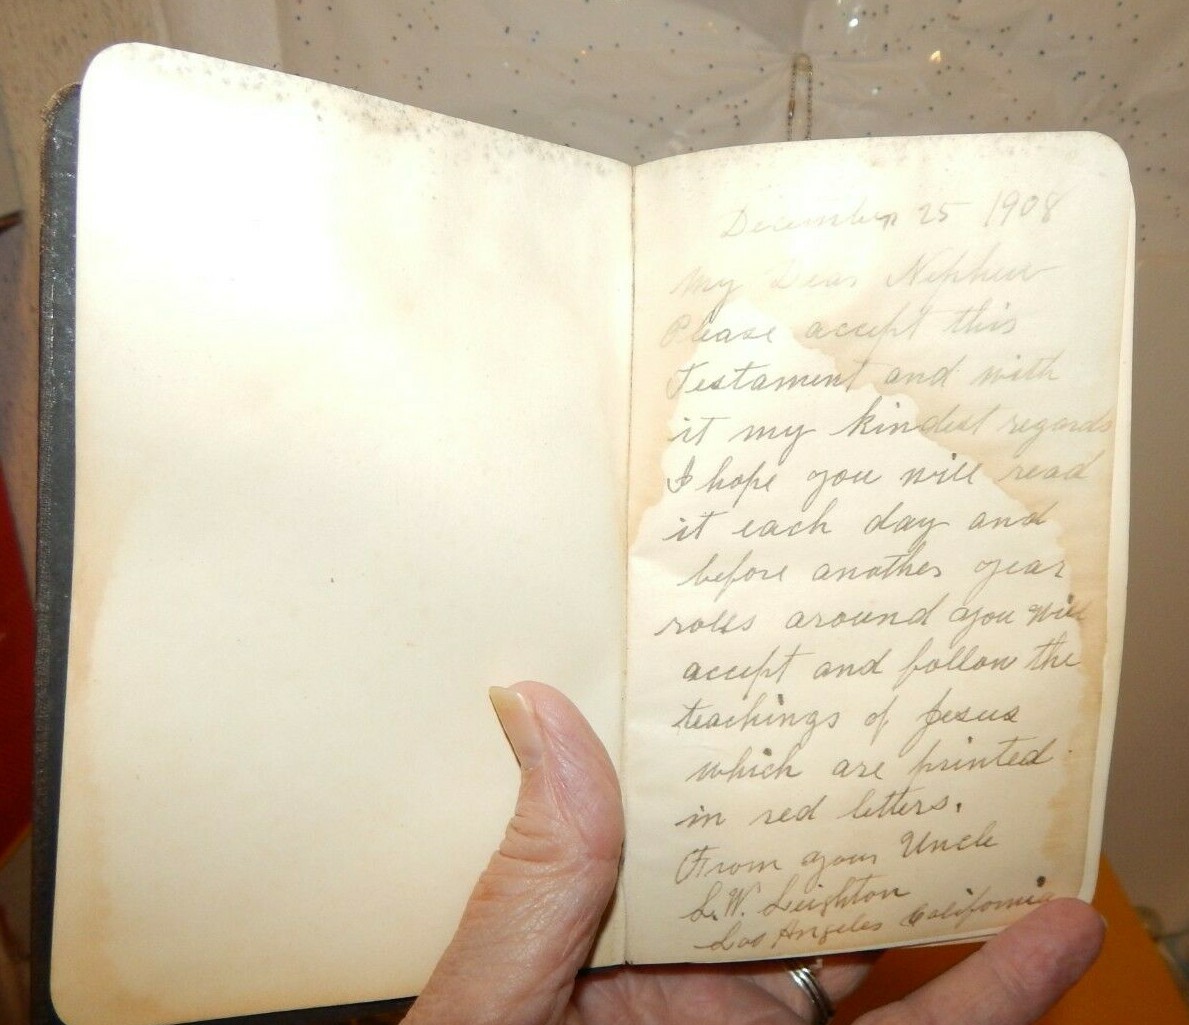 December 25 1908
My Dear Nephew
Please accept this
Testament and with
it my kindest regards
I hope you will read
it each day and
before another year
rolls around you will
accept and follow the
teachings of Jesus
which are printed
in red letters.
From your Uncle
L.W. Leighton
Los Angeles California